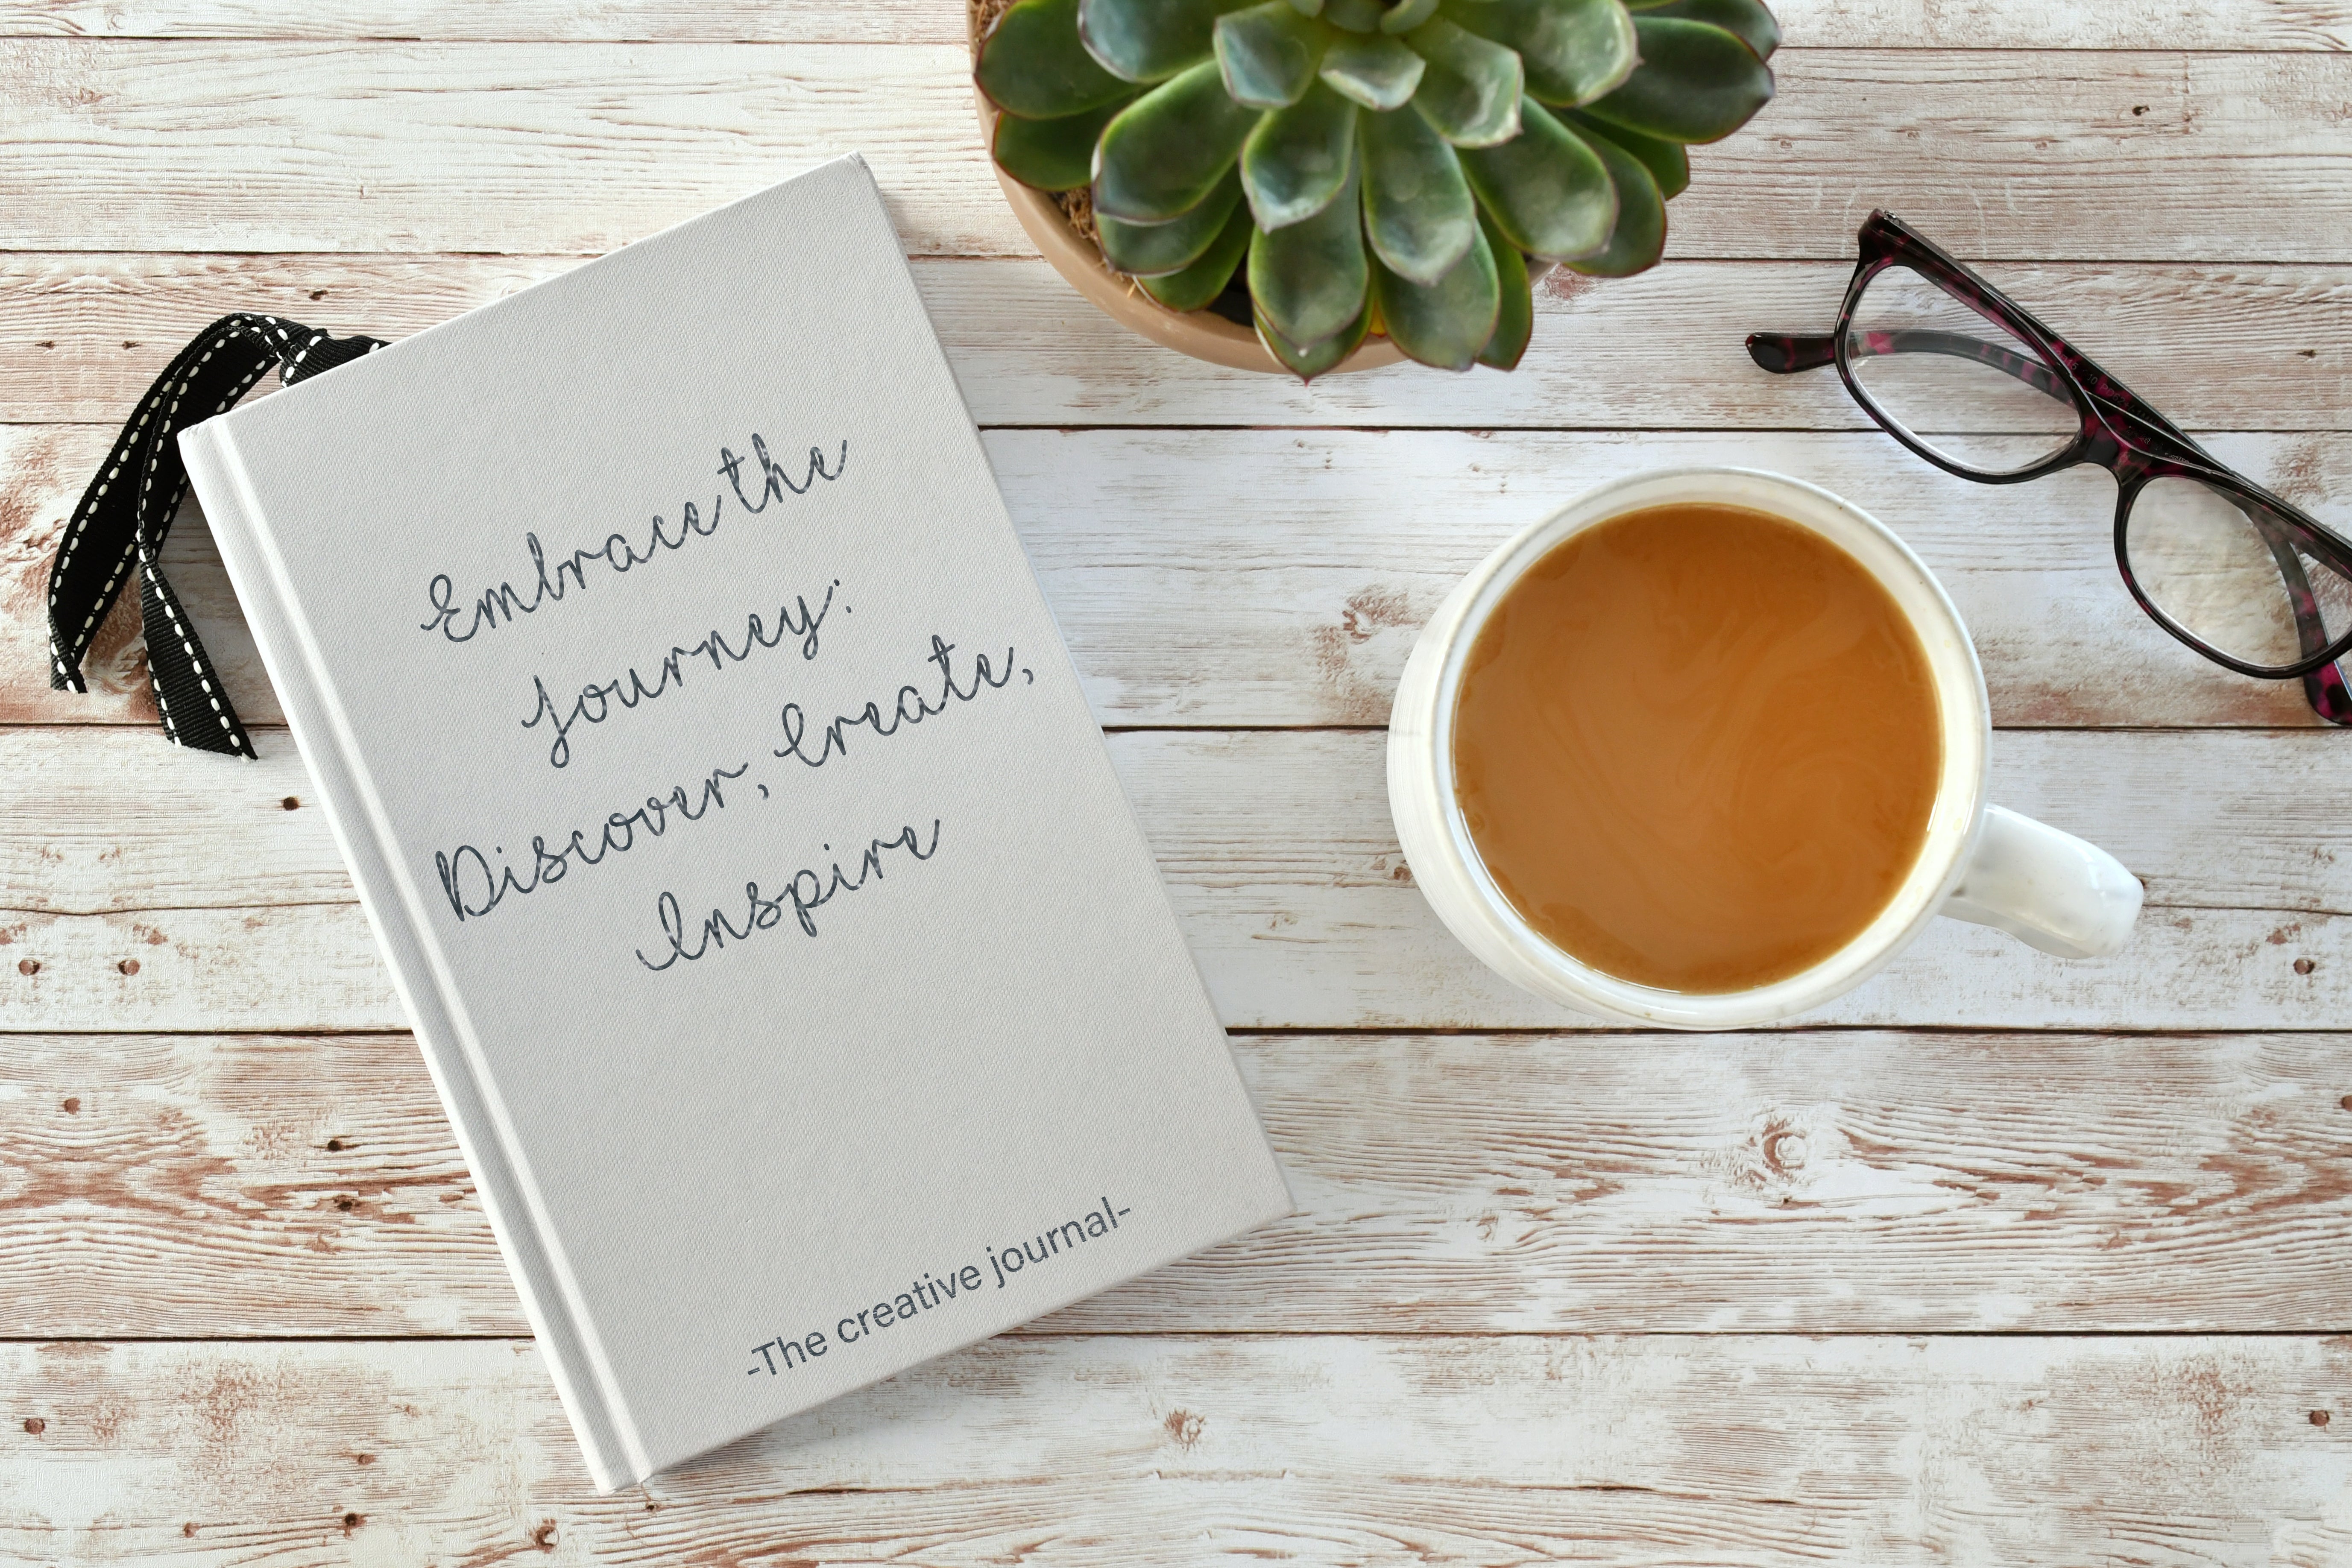 Embrace the
Journey:
Discover, Create,
Inspire
-The creative journal-